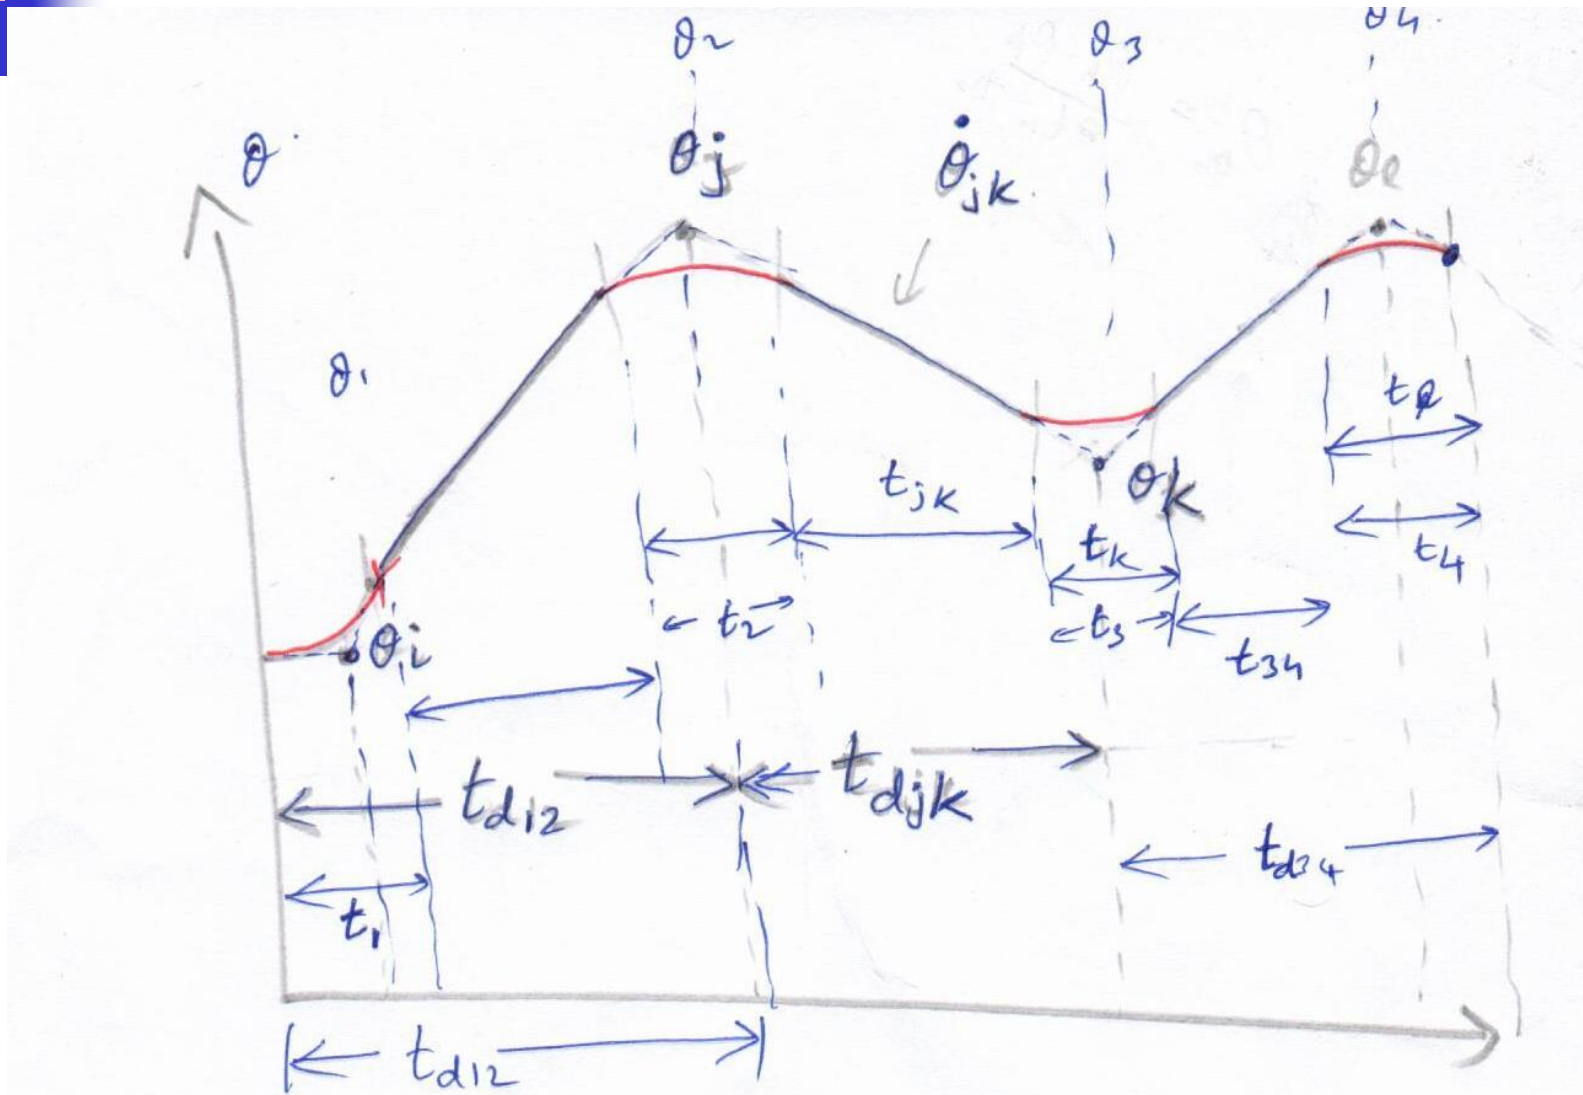 θ2
θ3
θ4
θ
θj
θ̇jk
θe
θ1
tl
tjk
θk
tk
t4
θi
t2
t3
t34
td12
tdjk
td34
t1
td12